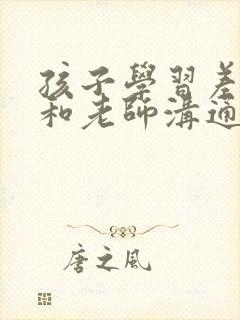 孩子學習差
和老師溝通
唐之風